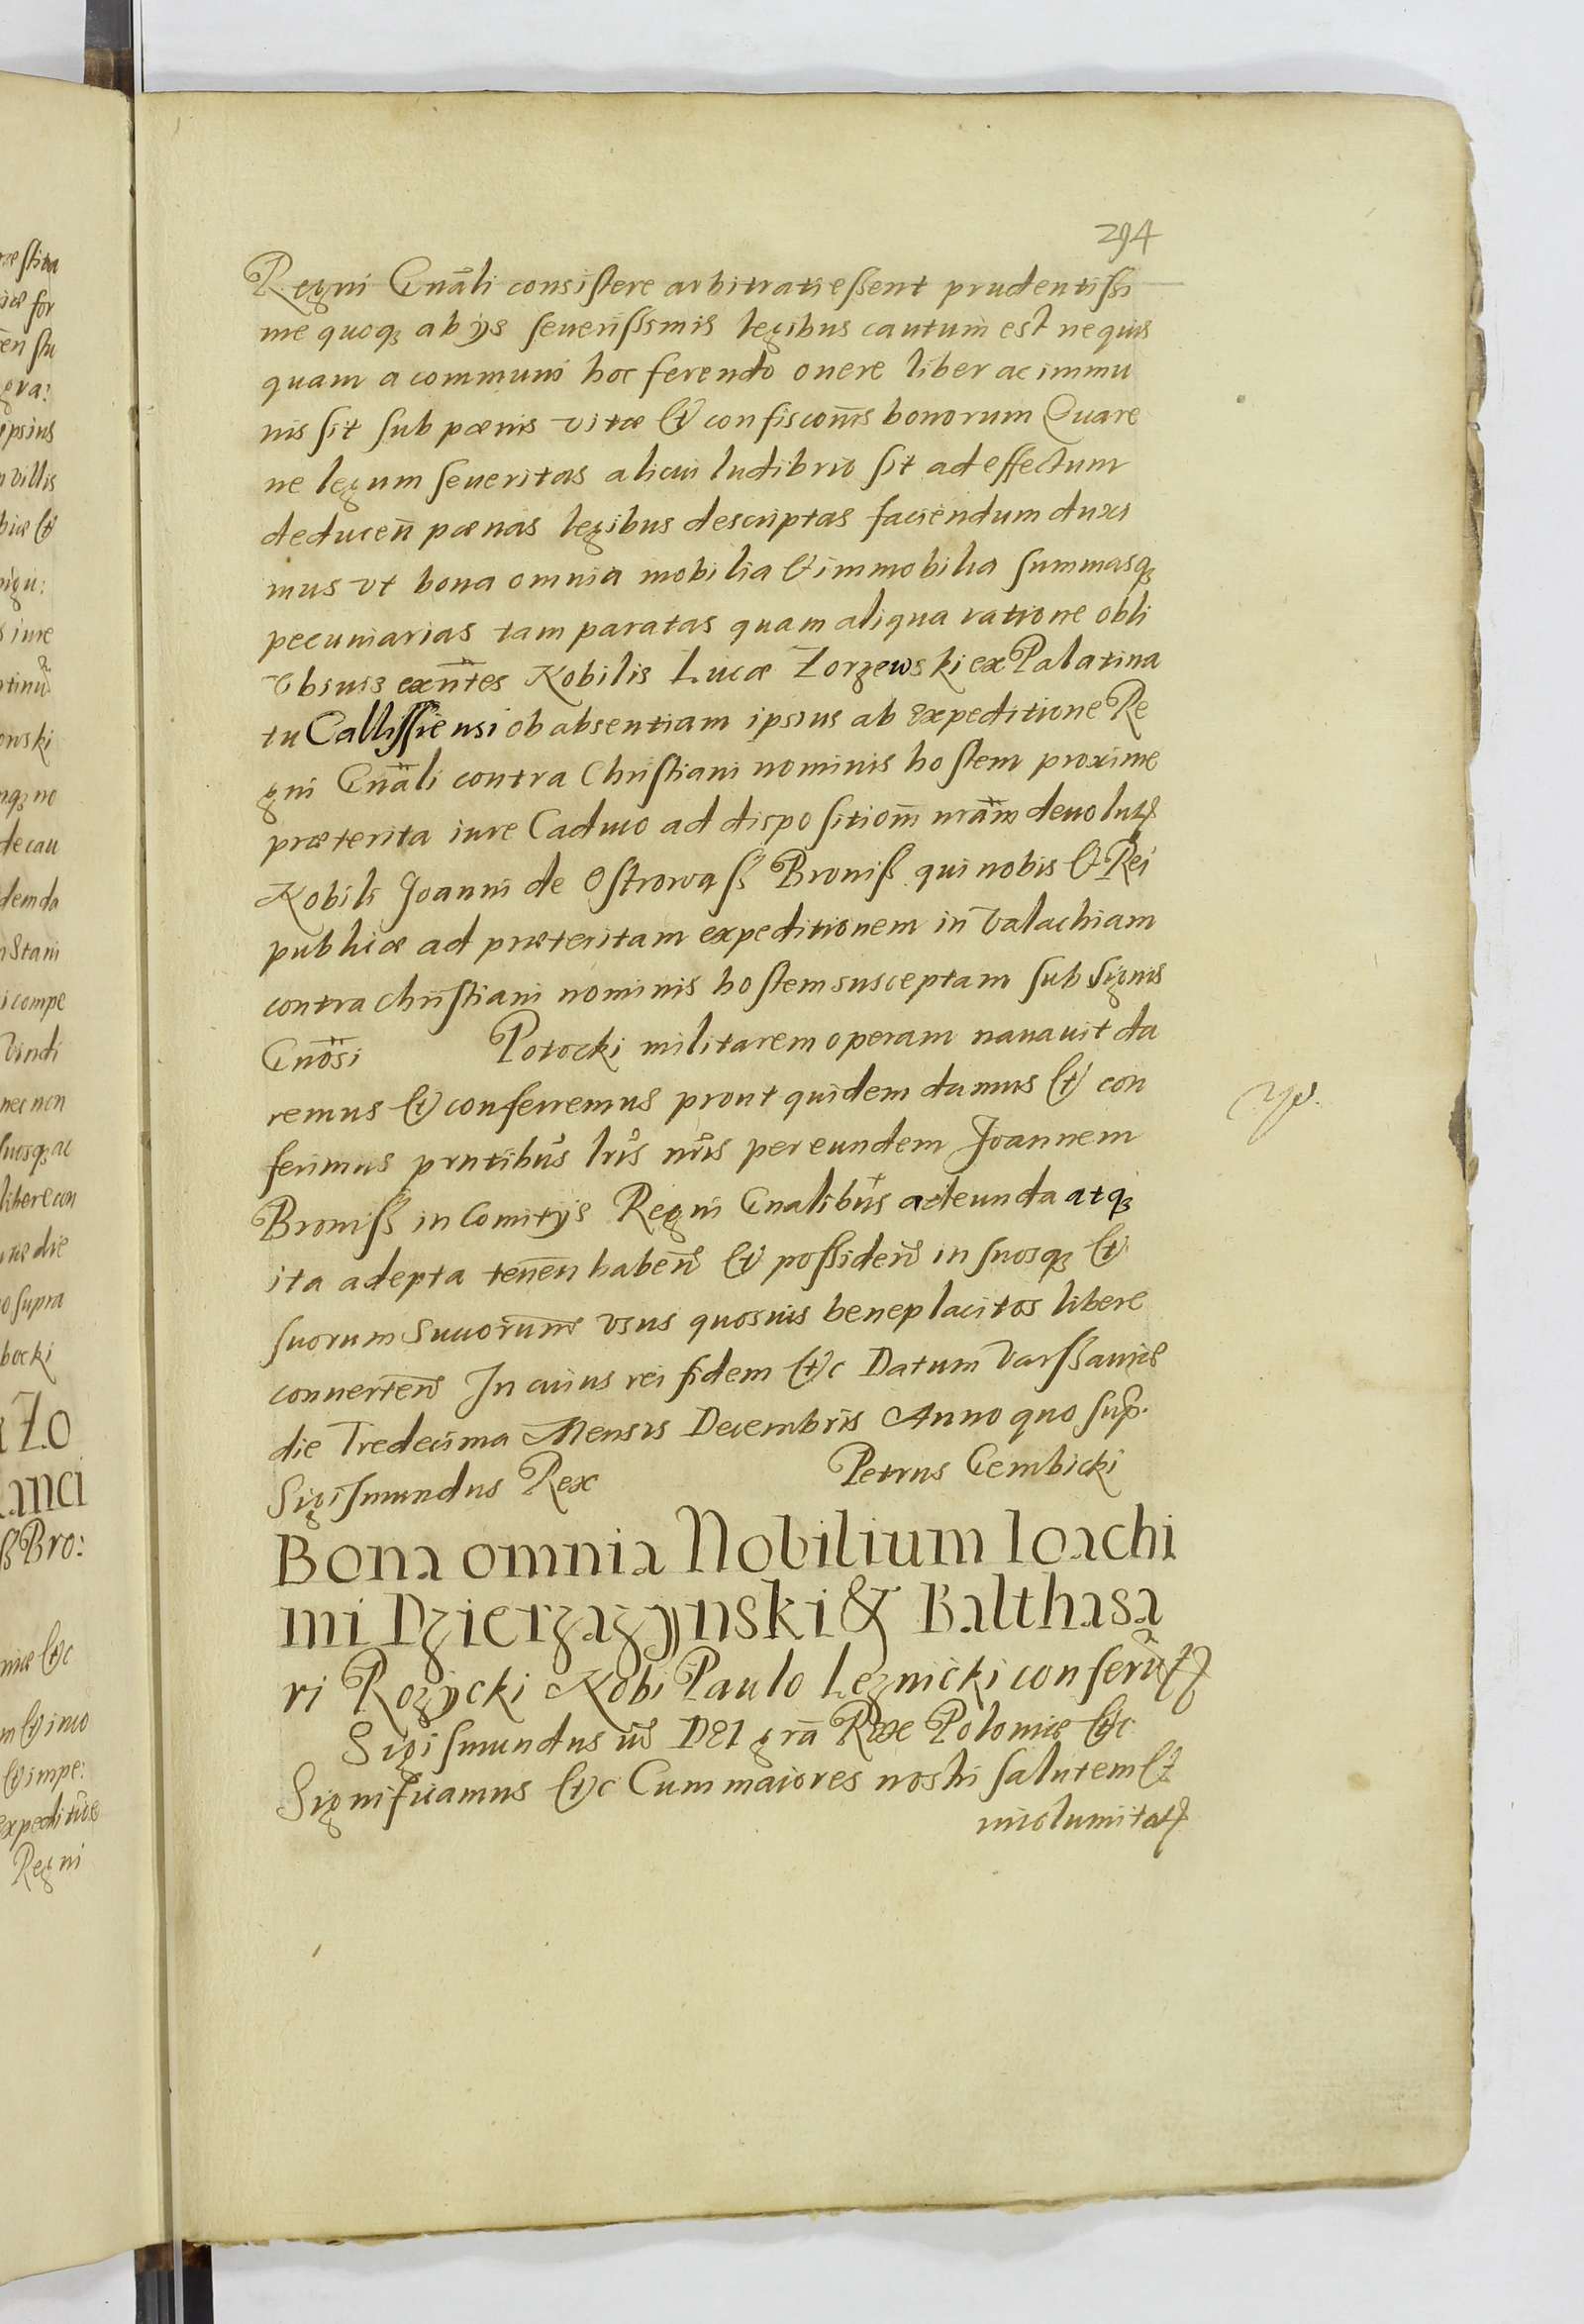 294
Regni Gnāli consistere arbitrati essent prudentissi
me quoq; ab ijs seuerissimis legibus cautum est nequis
quam a communi hoc ferendo onere liber ac immu
nis sit sub pœnis vitæ et confiscoīnis bonorum Quare
ne legum seueritas alicui ludibrio sit ad effectum
deducen̄ pœnas legibus descriptas faciendum duxi
mus vt bona omnia mobilia et immobilia summasq;
pecuniarias tam paratas quam aliqua ratione obli
vbiuis exn̄tes Nobilis Lucæ Zorzewski ex Palatina
tu Callissiensi ob absentiam ipsius ab expeditione Re
gni Gnāli contra Christiani nominis hostem proxime
præterita iure Caduco ad dispositiom̄ nrām deuoluta
Nobili Joanni de Ostrowąß Broniß qui nobis et Rei
publicæ ad præteritam expeditionem in Valachiam
contra Christiani nominis hostem susceptam sub signis
Gnōsi Potocki militarem operam nauauit da
remus et conferremus prout quidem damus et con
ferimus prntibus lris nris per eundem Joannem
Broniß in Comitijs Regni Gnalibus adeunda atq;
ita adepta tenen̄ haben̄ et possiden̄ in suosq; et
suorum Suuorum̄ vsus quosuis beneplacitos libere
conuerten̄ In cuius rei fidem etc Datum Varssauiæ
die Tredecima Mensis Decembris Anno quo sup.
Sigismundus Rex Petrus Gembicki
Bona omnia Nobilium Ioachi
mi Dzierzazynski & Balthasa
ri Rozycki Nobi Paulo Leznicki conferūt
Sigismundus iii DEI grā Rex Poloniæ etc
Significamus etc Cum maiores nostri salutem et
incolumitat
onski
villis
ipsius
iure
Stani
i compe
Vindi
nec non
libere con
o supra
bocki
Zo
anci
ß Bro:
Regni